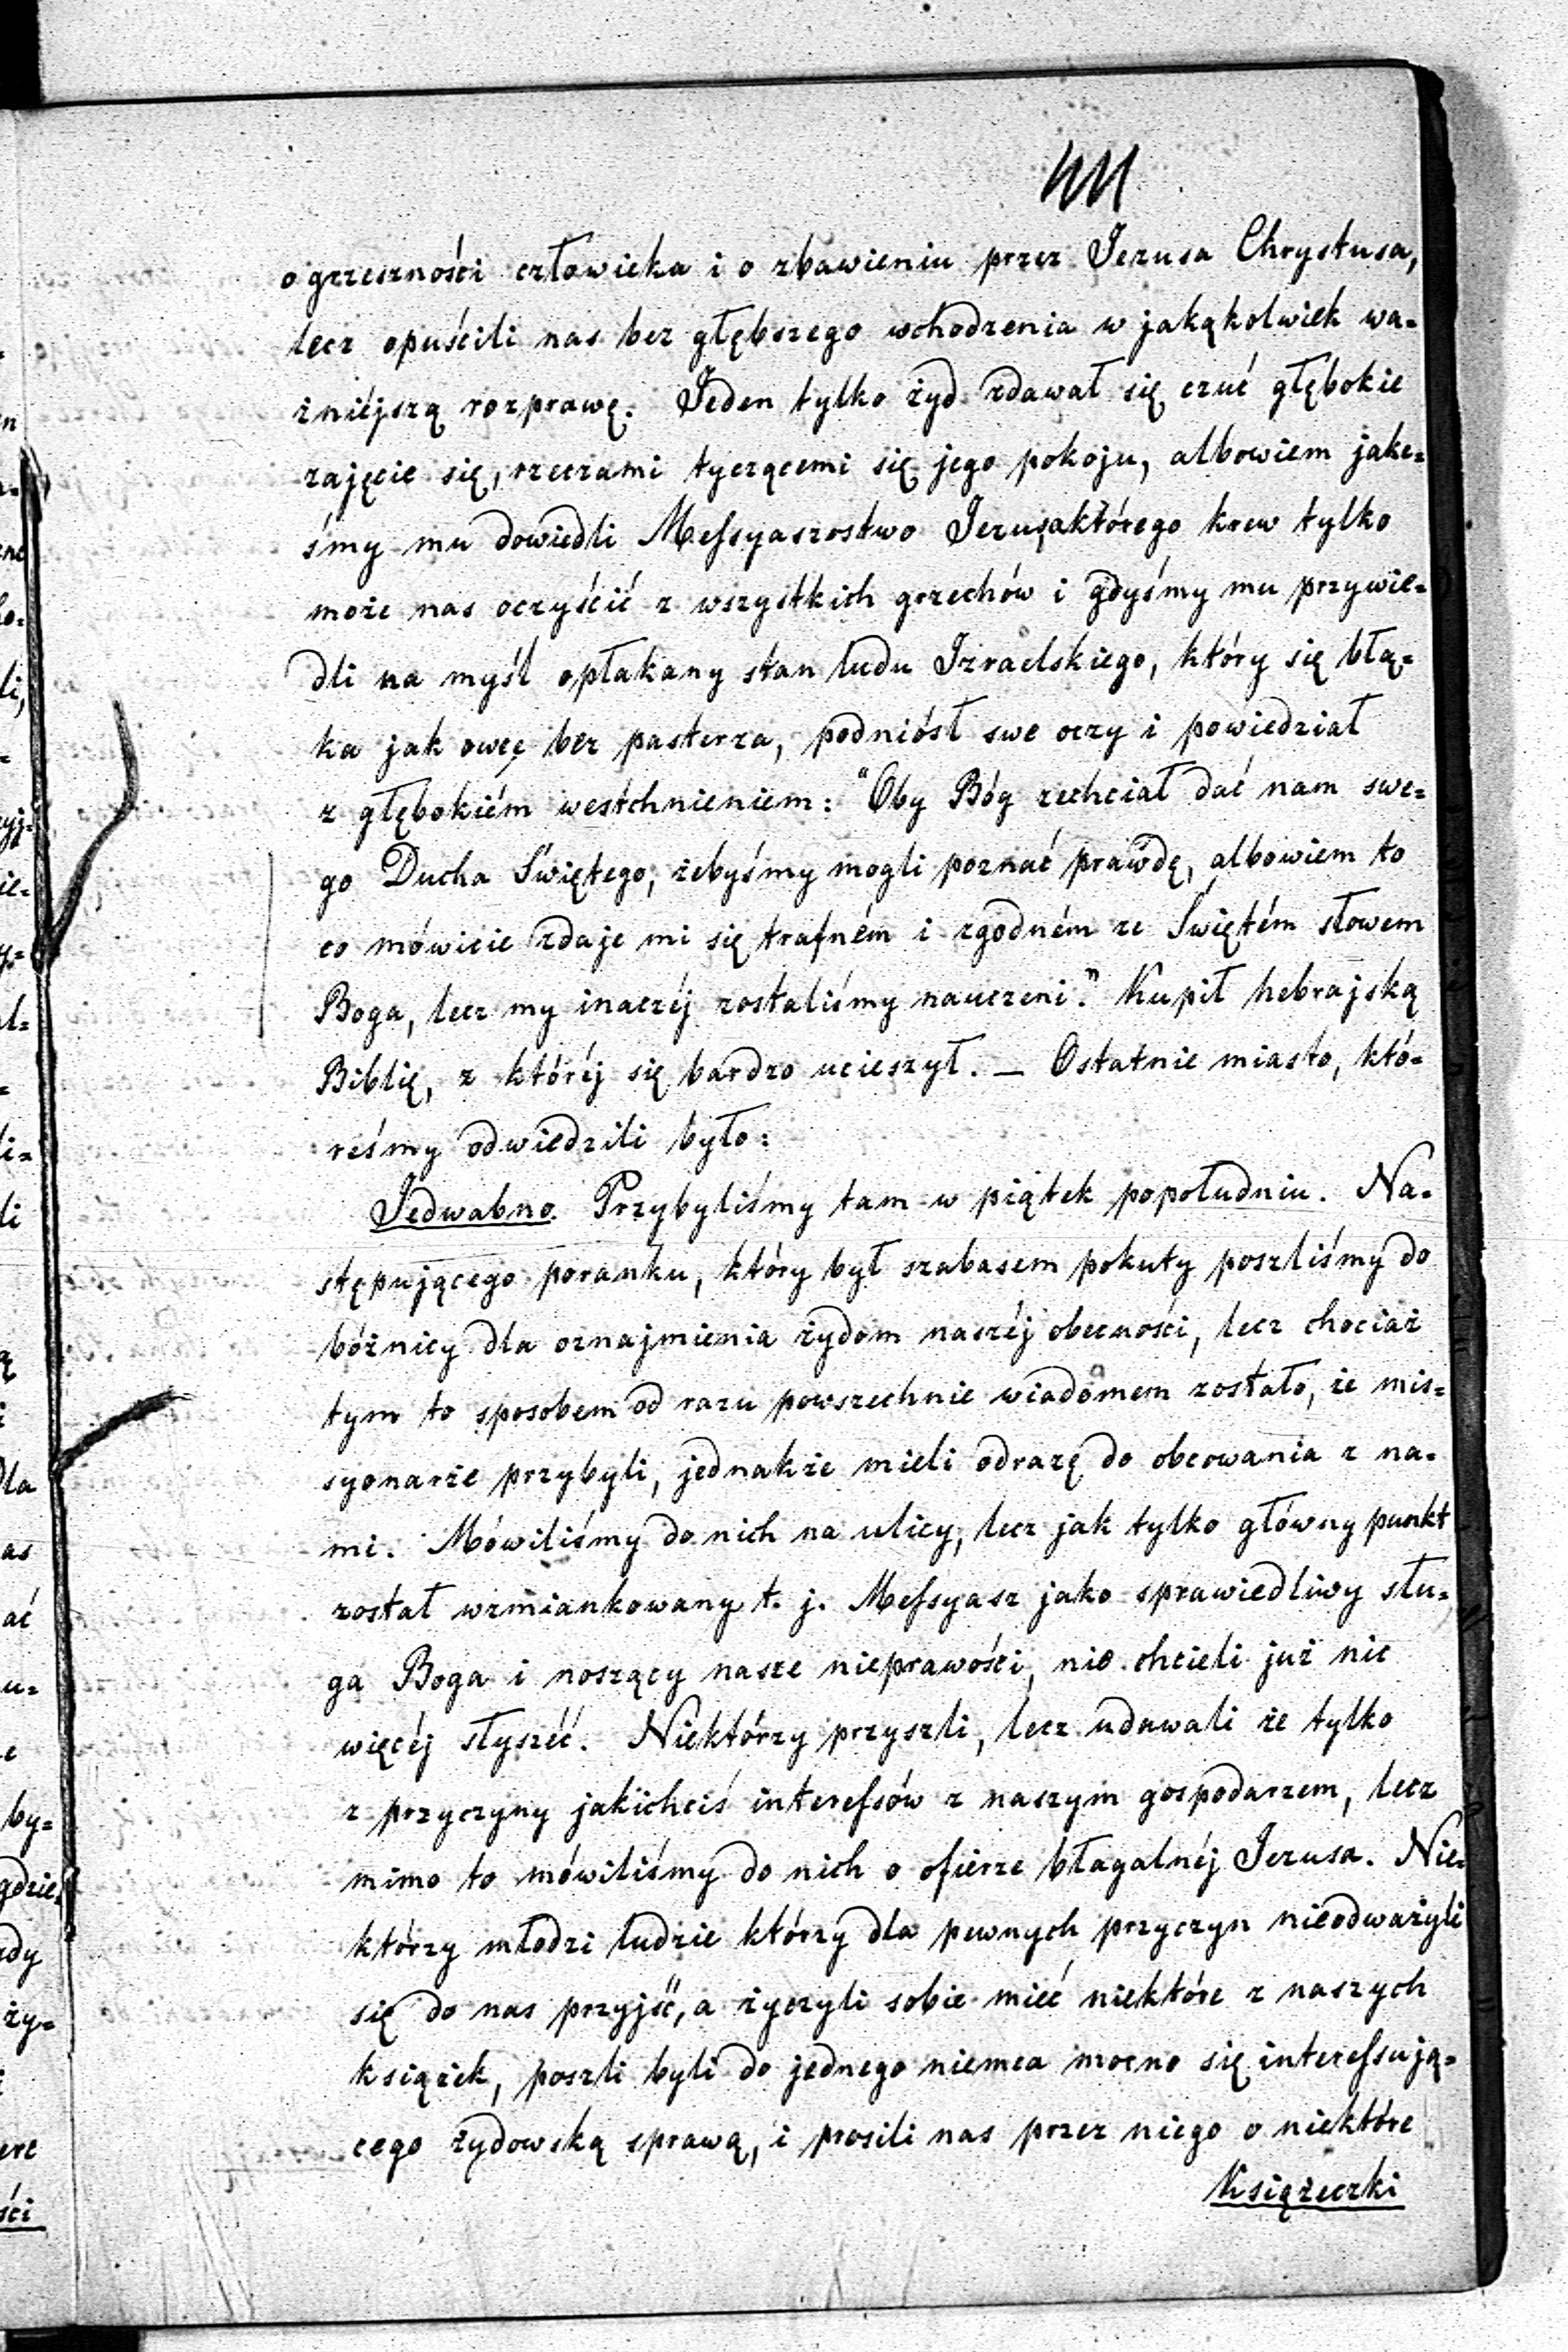 o grzeszności człowieka i o zbawieniu przez Jezusa Chrystusa,
lecz opuścili nas bez głębszego wchodzenia w jakąkolwiek wa-
żniéjszą rozprawę. Jeden tylko żyd zdawał się czuć głębokie
zajęcie się, rzeczami tyczącemi się jego pokoju, albowiem jake-
śmy mu dowiedli Messyaszostwo Jezusa którego krew tylko
może nas oczyścić z wszystkich grzechów i gdyśmy mu przywie-
dli na myśl opłakany stan ludu Izraelskiego, który się błą-
ka jak owcę bez pasterza, podniósł swe oczy i powiedział
z głębokiém westchnieniem: "Oby Bóg zechciał dać nam swe-
go Ducha Świętego, żebyśmy mogli poznać prawdę, albowiem to
co mówicie zdaje mi się trafném i zgodném ze Świętém słowem
Boga, lecz my inaczéj zostaliśmy nauczeni." Kupił hebrajską
Biblię, z któréj się bardzo ucieszył. — Ostatnie miasto, któ-
reśmy odwiedzili było:
Jedwabno. Przybyliśmy tam w piątek popołudniu. Na-
stępującego poranku, który był szabasem pokuty poszliśmy do
bóżnicy dla oznajmienia żydom naszéj obecności, lecz chociaż
tym to sposobem od razu powszechnie wiadomem zostało, że mis-
syonarze przybyli, jednakże mieli odrazę do obcowania z na-
mi. Mówiliśmy do nich na ulicy, lecz jak tylko główny punkt
został wzmiankowany t. j. Messyasz jako sprawiedliwy słu-
ga Boga i noszący nasze nieprawości, nie chcieli już nic
więcéj słyszéć. Niektórzy przyszli, lecz udawali że tylko
z przyczyny jakichciś interessów z naszym gospodarzem, lecz
mimo to mówiliśmy do nich o ofierze błagalnéj Jezusa. Nie-
którzy młodzi ludzie którzy dla pewnych przyczyn nieodważyli
się do nas przyjść, a życzyli sobie mieć niektóre z naszych
książek, poszli byli do jednego niemca mocno się interessują-
cego żydowską sprawą, i prosili nas przez niego o niektóre
Książeczki